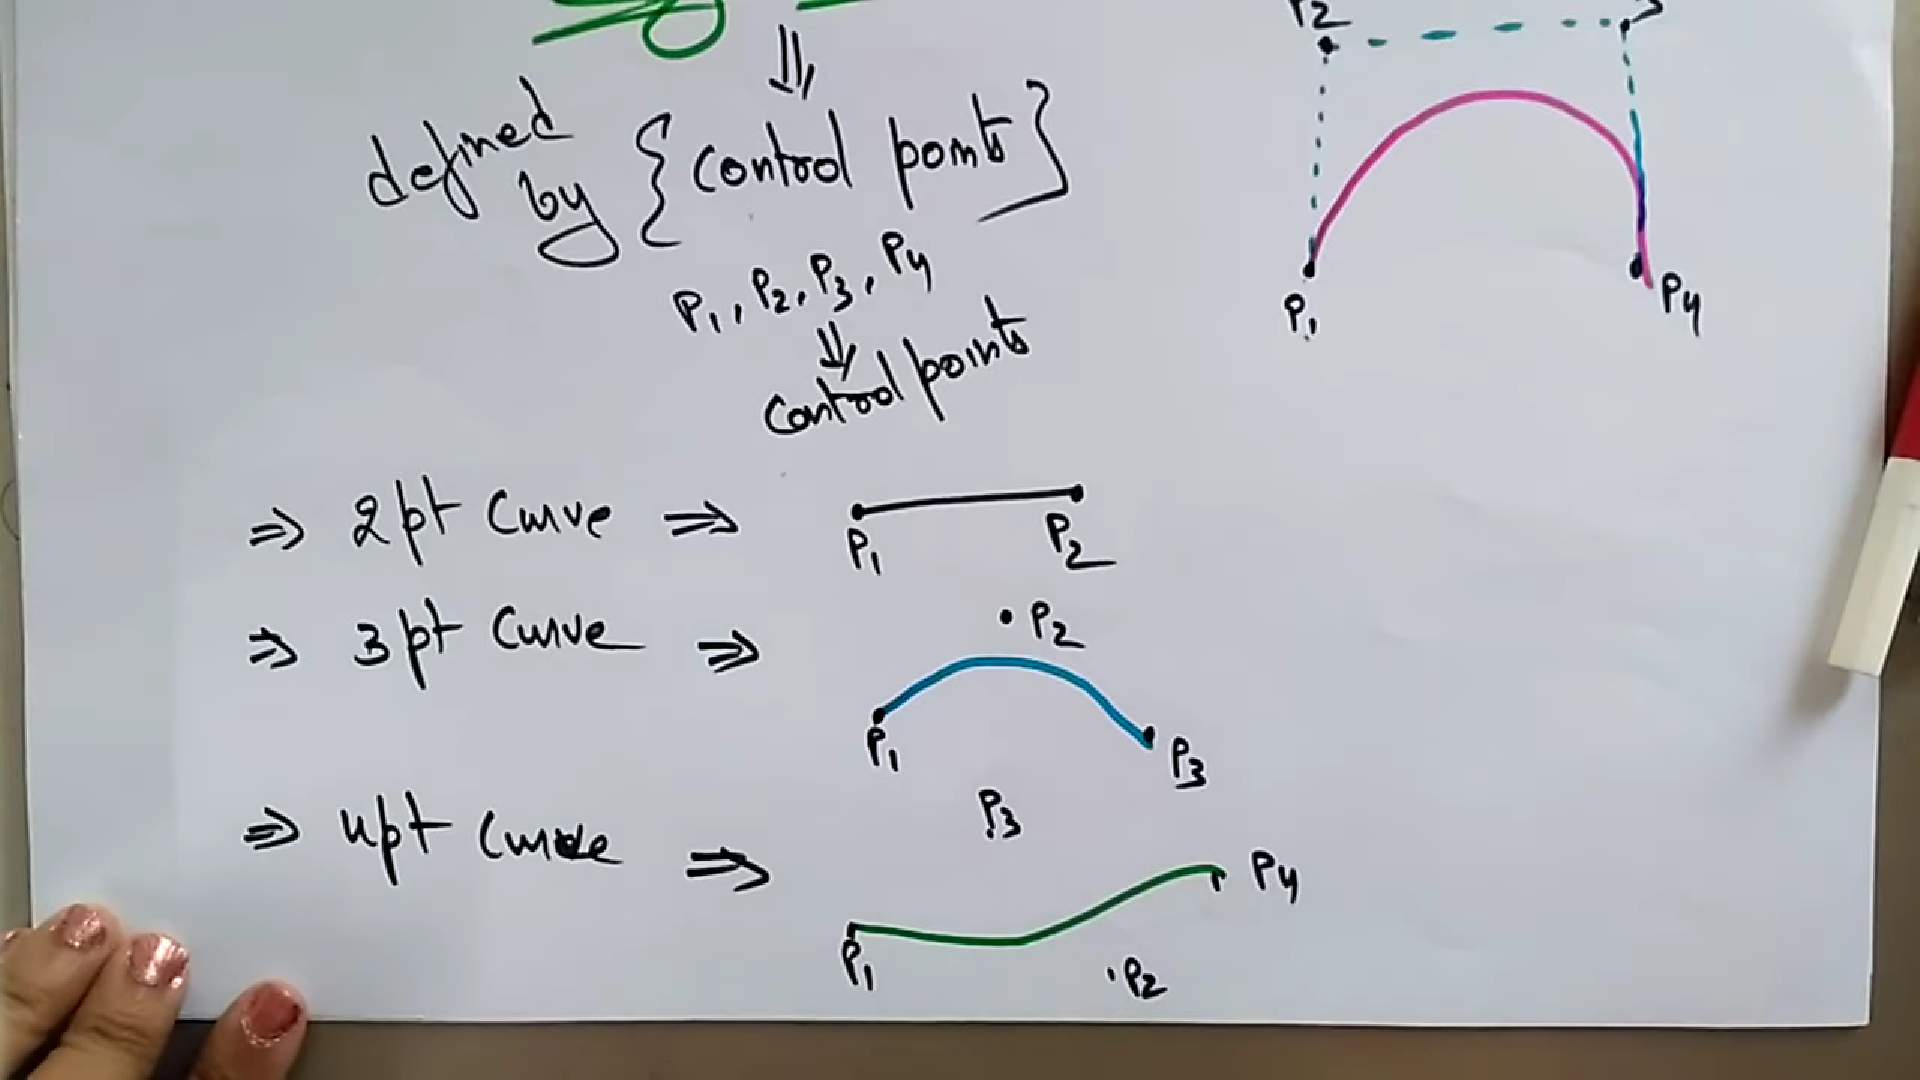 P2
defined
by {control points}
P1, P2, P3, P4
control points
P1
P4
⇒ 2pt Curve ⇒
P1 P2
⇒ 3pt Curve ⇒
P2
P1 P3
⇒ 4pt Curve ⇒
P3
P4
P1
P2